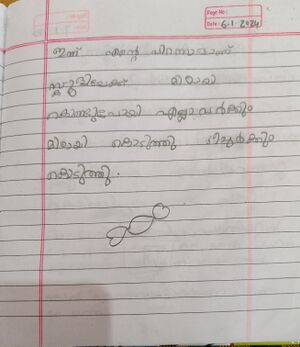 Page No:
Date: 6.1.2024
ഇന്ന് എന്റെ പിറന്നാളാണ്
സ്കൂളിലേക്ക് മിഠായി
കൊണ്ടുപോയി എല്ലാവർക്കും
മിഠായി കൊടുത്തു ടീച്ചർക്കും
കൊടുത്തു.